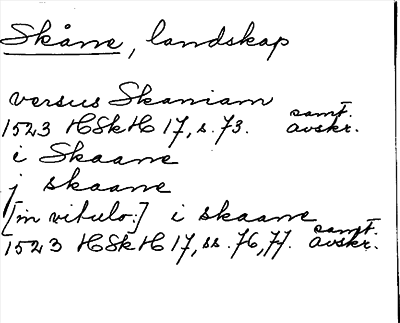 Skåne, landskap
versus Skaniam
1523 HSkH 17, s. 73. samt. avskr.
i Skaane
j skaane
[in vitulo:] i skaane
1523 HSkH 17, ss. 76, 77. samt. avskr.